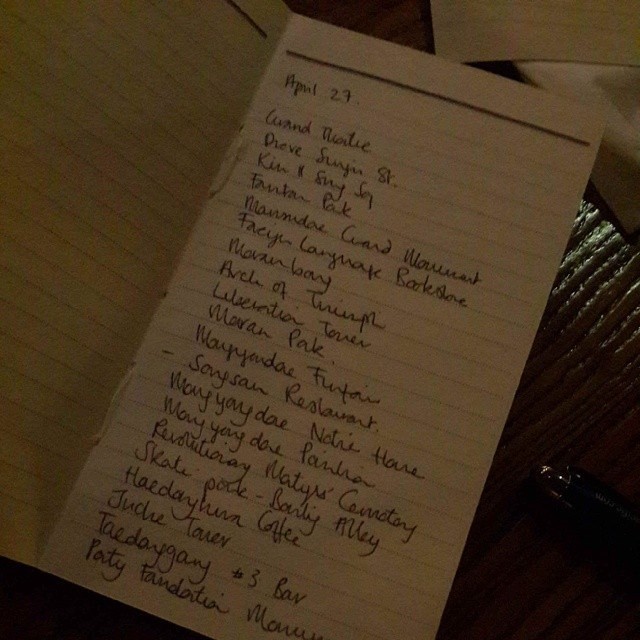 April 27.
Grand Theatre
Drove Sungri St.
Kim Il Sung Sq
Fountain Park
Mansudae Grand Monument
Foreign Language Bookstore
Moranbong
Arch of Triumph
Liberation Tower
Moran Park.
Mangyongdae Funfair
- Songsan Restaurant.
Mangyongdae Native House
Mangyongdae Pavilion
Revolutionary Martyrs Cemetery
Skate-park - Bowling Alley
Coffee
Juche Tower
Taedonggang #3 Bar
Party Foundation